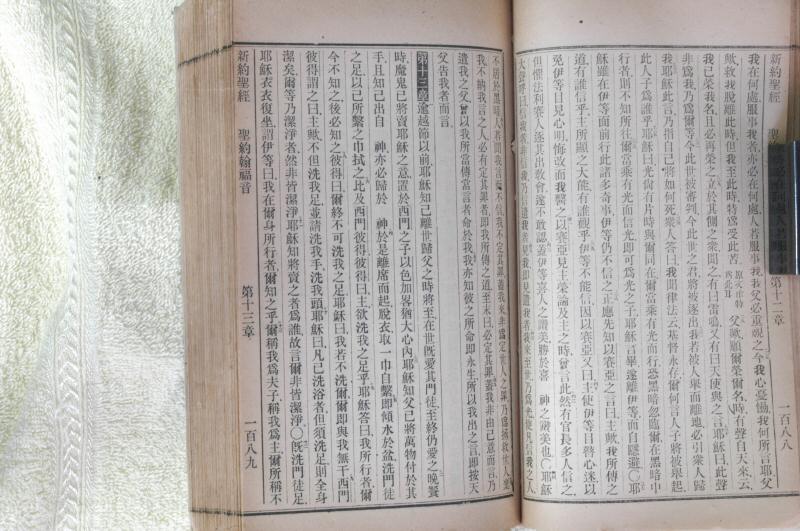 新約聖經 聖約 第十二章 一百八八
我在何處服事我者亦必在何處人若服事我我父必重視之今我心憂慟我何所言耶父
歟救我脫離此時但我至此時特為受此苦 父歟願爾榮爾名時有聲自天來云
我已榮我名且必再榮之立於其側之衆聞之有曰雷鳴又有曰天使與之言耶穌曰此聲
非為我乃為爾等今此世被審判今此世之君將被逐出我若被人舉而離地必引衆人歸
我耶穌此言乃指自己將如何死衆人答曰我聞律法云基督永存爾何言人子將被舉起
此人子為誰乎耶穌曰光尙有片時與爾同在爾當乘有光而行恐黑暗忽臨爾在黑暗中
行者則不知所往爾當乘有光而信光即可為光之子耶穌言畢遂離伊等而自隱避〇耶
穌雖在伊等面前行此諸多奇事伊等仍不信之正應先知以賽亞之言曰主歟我所傳之
道有誰信乎主所顯之大能有誰觀乎伊等不能信因以賽亞又曰主使伊等目瞽心迷以
免伊等目見心明悔改而我醫之以賽亞見主榮論及主之時曾言此然有官長多人信之
但懼法利賽人逐其出敎會遂不敢認蓋伊等喜人之讚美勝於喜 神之讚美也〇耶穌
大聲呼曰信我者非信我乃信遣我者見我即見遣我者我來至世乃為光使凡信我之人
不居於黑暗人若聞我言而不信我不定其罪蓋我來非為定世人之罪乃為拯救世人棄
我不納我言之人必有定其罪者即我所傳之道至末日必定其罪蓋我非由己意而言乃
遣我之父曾以我所當傳當言者命於我我亦知彼之所命即永生所以我出之言即按天
父告我者而言
第十三章 逾越節以前耶穌知己離世歸父之時將至在世旣愛其門徒至終仍愛之晚餐
時魔鬼已將賣耶穌之意置於西門之子以色加畧猶大心內耶穌知父已將萬物付於其
手且知己出自 神亦必歸於 神於是離席而起脫衣取一巾自繫即傾水於盆洗門徒
之足以己所繫之巾拭之比及西門彼得彼得曰主欲洗我之足乎耶穌答曰我所行者爾
今不知之後必知之彼得曰爾終不可洗我之足耶穌曰我若不洗爾爾即與我無干西門
彼得謂之曰主歟不但洗我足並請洗我手洗我頭耶穌曰凡已洗浴者但須洗足則全身
潔矣爾等乃潔淨者然非皆潔淨耶穌知將賣之者為誰故言爾非皆潔淨〇旣洗門徒足
耶穌衣衣復坐謂伊等曰我在爾身所行者爾知之乎爾稱我為夫子稱我為主爾所稱不
新約聖經 聖約翰福音 第十三章 一百八九